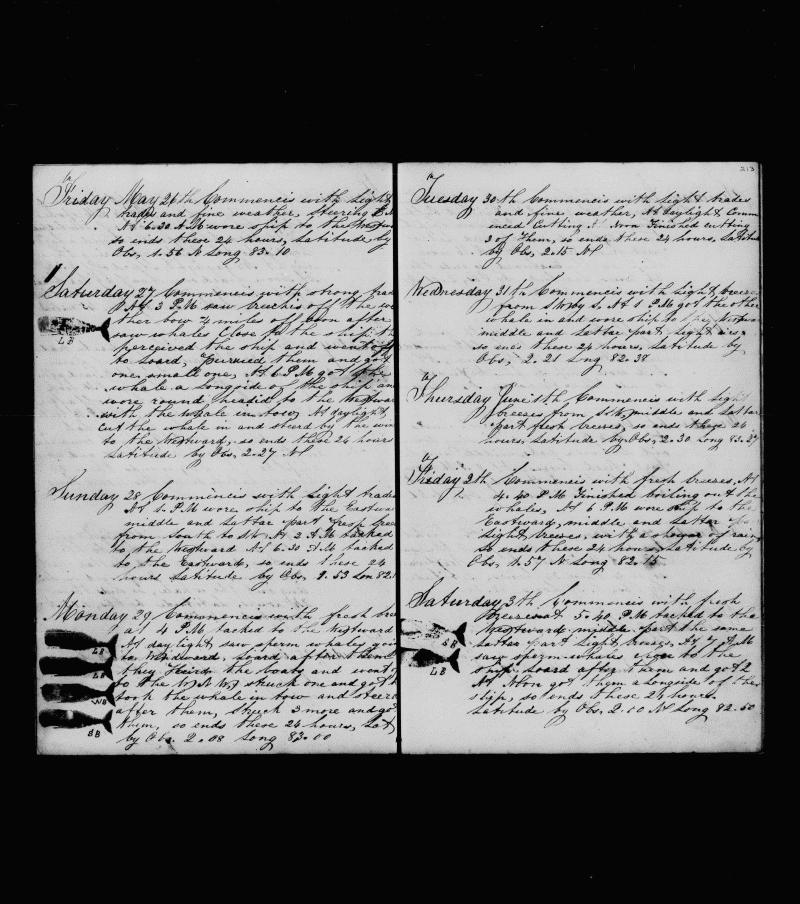 Friday May 26th Commencis with Light
trades and fine weather, steering
At 6.30 A.M wore ship to the Westward
so ends these 24 hours, Latitude by
Obs, 1.56 N Long 83.10
Saturday 27 Commencis with strong trades
At 3 P.M saw breches off the
ther bow 7 miles off soon after
saw whales Close to the ship
perceived the ship and went off
to board, persued them and got
one, small one, At 6 P.M got the
whale a longside of the ship and
wore round headid to the Westward
with the whale in tow, At daylight,
cut the whale in and steerd by the wind
to the Westward, so ends these 24 hours
Latitude by Obs, 2.27 N
LB
Sunday 28 Commencis with Light trades
At 1. P.M wore ship to the Eastward
middle and Lattar part fresh breeses
from South to At 2 A.M tacked
to the Westward At 6.30 A.M tacked
to the Eastward, so ends these 24
hours Latitude by Obs, 1.53 Lon 82.
Monday 29 Commencis with fresh
at 4 P.M tacked to the Westward
At daylight saw sperm whales
to Windward, board after them
they Heird the boats and went
to the struck one and got
took the whale in tow and steerd
after them, struck 3 more and got
them, so ends these 24 hours, Lat
by Obs. 2.08 Long 83.00
LB
LB
WB
SB
213
Tuesday 30th Commencis with Light trades
and fine weather, At daylight Comm
enced Cutting At Noon Finished cutting
3 of them, so ends these 24 hours, Latitude
by Obs, 2.15 N
Wednesday 31th Commencis with Light breeses
from S to by S, At 1 P.M got the other
whale in and wore ship to the
middle and Lattar part, Light airs
so ends these 24 hours, Latitude by
Obs, 2.21 Lng 82.37
Thursday June 1th Commencis with Light
breeses from middle and Lattar
part fresh breeses, so ends these 24
hours, Latitude by Obs, 2.30 Long 83.27
Friday 2th Commencis with fresh breeses, At
4.40 P.M Finished boiling out the
whales, At 6 P.M wore ship to the
Eastward, middle and Lattar
Light breeses, with a shower of rain,
so ends these 24 hours, Latitude by
Obs, 1.57 N Long 82.15
Saturday 3th Commencis with fresh
Breeses at 5.40 P.M tacked to the
Westward middle part the same
Lattar part Light breeses, At 7 A.M
saw sperm whales close to the
ship board after them and got 2
At Noon got them a Longside of the
ship, so ends these 24 hours.
Latitude by Obs, 2.10 N Long 82.50
SB
LB